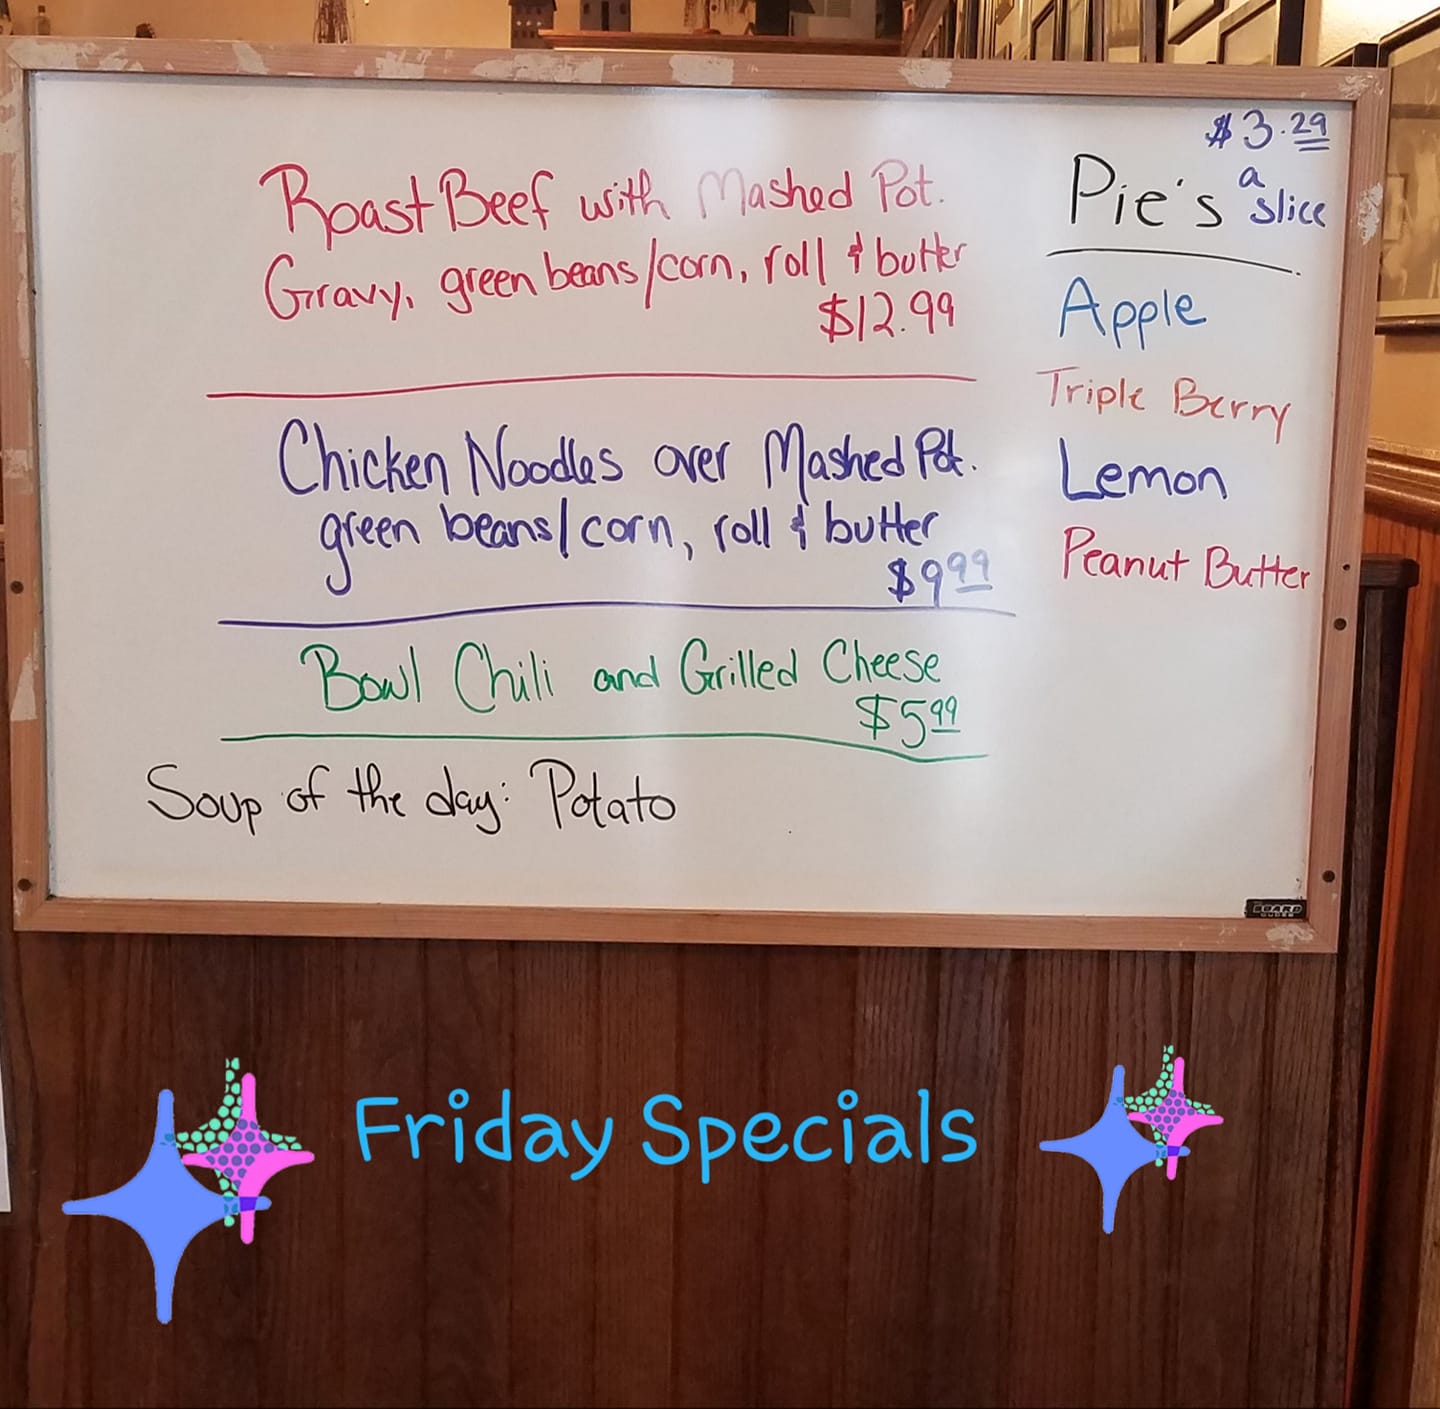 Roast Beef with Mashed Pot.
Gravy, green beans/corn, roll & butter
$12.99
Chicken Noodles over Mashed Pot.
green beans/corn, roll & butter
$9.99
Bowl Chili and Grilled Cheese
$5.99
Soup of the day: Potato
$3.29
a
Pie's slice
Apple
Triple Berry
Lemon
Peanut Butter
BOARD
Friday Specials